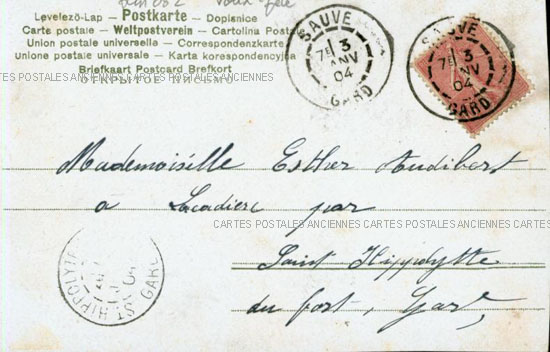 Levelező-Lap — Postkarte — Dopisnice
Carte postale — Weltpostverein — Cartolina Postale
Union postale universelle — Correspondenzkarte
unione postale universale — Karta korespondencyjna
Briefkaart Postcard Brefkort
ОТКРЫТОЕ ПИСЬМО
SAUVE
7E 3
JANV
04
GARD
SAUVE
7E 3
JANV
04
GARD
CARTES POSTALES ANCIENNES CARTES POSTALES ANCIENNES CARTES POSTALES ANCIENNES CARTES POSTALES ANCIENNES
Mademoiselle Esther Audibert
a Lacadière par
CARTES POSTALES ANCIENNES CARTES POSTALES ANCIENNES
Saint Hippolytte
du fort, Gard
ST HIPPOLYTE
04
GARD